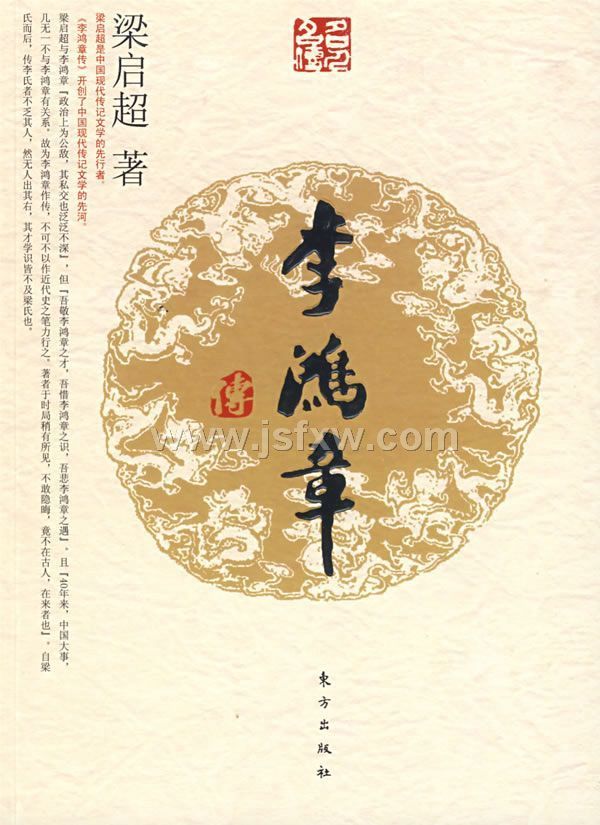 梁启超 著
梁启超是中国现代传记文学的先行者。
《李鸿章传》开创了中国现代传记文学的先河。
梁启超与李鸿章『政治上为公敌,其私交也泛泛不深』,但『吾敬李鸿章之才,吾惜李鸿章之识,吾悲李鸿章之遇』。且『40年来,中国大事,
几无一不与李鸿章有关系。故为李鸿章作传,不可不以作近代史之笔力行之。著者于时局稍有所见,不敢隐晦,竟不在古人,在来者也』。自梁
氏而后,传李氏者不乏其人,然无人出其右,其才学识皆不及梁氏也。
李鸿章
傳
東方出版社
www.jsfxw.com